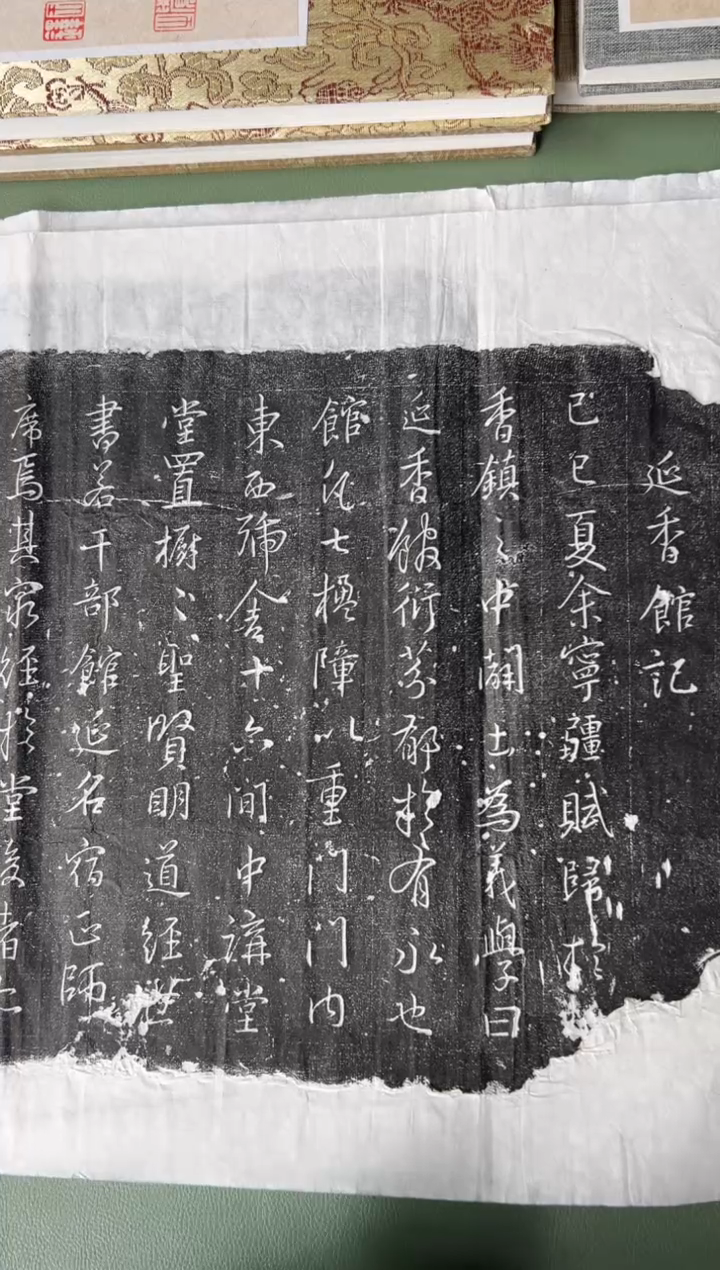 延香館記
己巳夏余寧疆賦歸於
香鎮之中闢土為義學曰
延香馥衍芬郁於有永也
館凡七楹障以重門門内
東西號舍十六間中講堂
堂置櫥〻聖賢明道經世
書若干部館延名宿正師
席焉其窮經於堂後者